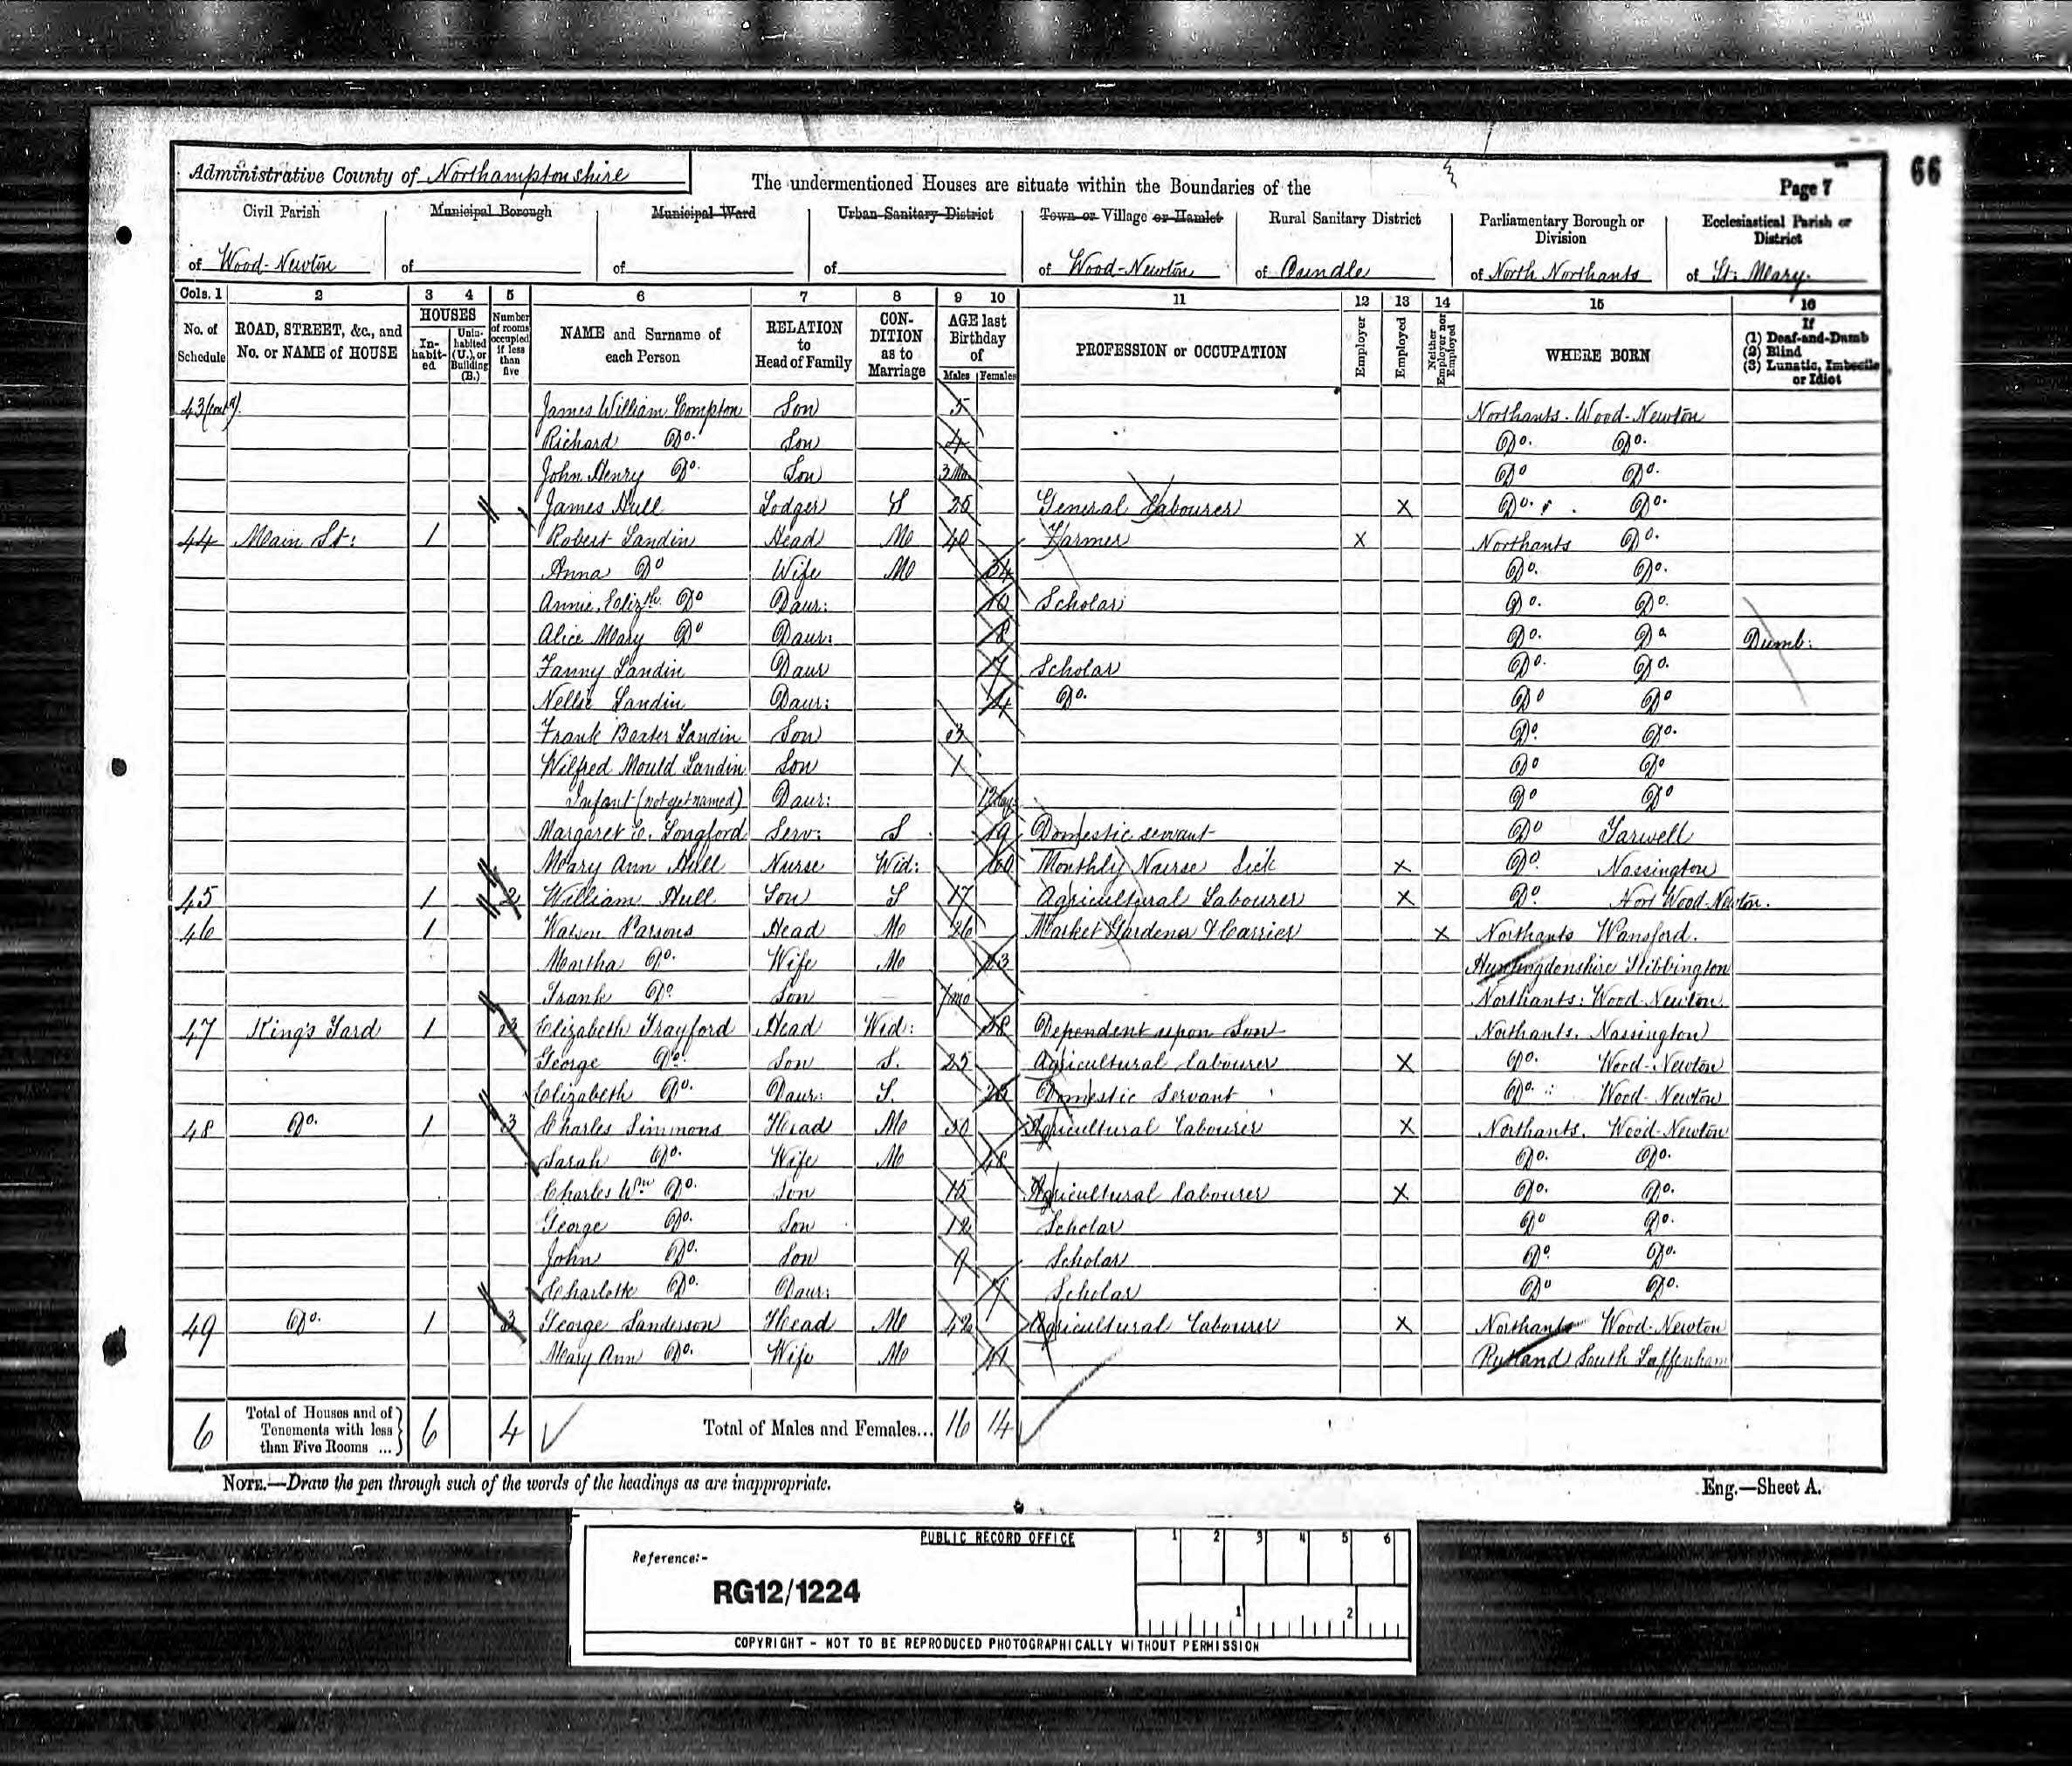 66
Administrative County of Northamptonshire
The undermentioned Houses are situate within the Boundaries of the
Page 7
Civil Parish Municipal Borough Municipal Ward Urban Sanitary District Town or Village or Hamlet Rural Sanitary District Parliamentary Borough or Division Ecclesiastical Parish or District
of Wood-Newton of of of of Wood-Newton of Oundle of North Northants of St. Mary.
Cols. 1 2 3 4 5 6 7 8 9 10 11 12 13 14 15 16
No. of Schedule ROAD, STREET, &c., and No. or NAME of HOUSE HOUSES Inhabited Uninhabited (U.), or Building (B.) Number of rooms occupied if less than five NAME and Surname of each Person RELATION to Head of Family CONDITION as to Marriage AGE last Birthday of Males Females PROFESSION or OCCUPATION Employer Employed Neither Employer nor Employed WHERE BORN If (1) Deaf-and-Dumb (2) Blind (3) Lunatic, Imbecile or Idiot
43 (contd). James William Compton Son 5 Northants. Wood-Newton
Richard Do. Son 4 Do. Do.
John Henry Do. Son 3 Mo. Do Do.
James Hull Lodger S 25 General Labourer X Do. Do.
44 Main St: 1 Robert Landin Head M 40 Farmer X Northants Do.
Anna Do Wife M 34 Do. Do.
Annie Elizth. Do Daur: 10 Scholar Do. Do.
Alice Mary Do Daur: 8 Do. Do Dumb:
Fanny Landin Daur 7 Scholar Do. Do.
Nellie Landin Daur: 4 Do. Do Do
Frank Baxter Landin Son 3 Do. Do.
Wilfred Mould Landin Son 1 Do Do
Infant (not yet named) Daur: 12 days Do Do
Margaret E. Longford Serv: S 19 Domestic servant Do Yarwell
Mary Ann Hull Nurse Wid: 60 Monthly Nurse Sick X Do. Nassington
45 1 2 William Hull Son S 17 Agricultural Labourer X Do. Wood-Newton.
46 1 Watson Parsons Head M 26 Market Gardener & Carrier X Northants Wansford.
Martha Do. Wife M 23 Huntingdonshire Stibbington
Frank Do Son 7 mo Northants: Wood-Newton
47 King's Yard 1 3 Elizabeth Trayford Head Wid: 58 Dependent upon Son Northants. Nassington
George Do. Son S. 25 Agricultural Labourer X Do. Wood-Newton
Elizabeth Do. Daur: S. Domestic Servant Do. Wood-Newton
48 Do. 1 3 Charles Simmons Head M 50 Agricultural Labourer X Northants. Wood-Newton
Sarah Do. Wife M 48 Do. Do.
Charles Wm Do. Son 15 Agricultural Labourer X Do. Do.
George Do. Son 12 Scholar Do Do.
John Do. Son 9 Scholar Do. Do.
Charlotte Do. Daur: 7 Scholar Do Do.
49 Do. 1 3 George Sanderson Head M 42 Agricultural Labourer X Northants Wood-Newton
Mary Ann Do. Wife M 41 Rutland South Luffenham
6 Total of Houses and of Tenements with less than Five Rooms ... 6 4 Total of Males and Females... 16 14
NOTE.—Draw the pen through such of the words of the headings as are inappropriate.
Eng.—Sheet A.
PUBLIC RECORD OFFICE 1 2 3 4 5 6
Reference:-
RG12/1224
1 2
COPYRIGHT - NOT TO BE REPRODUCED PHOTOGRAPHICALLY WITHOUT PERMISSION